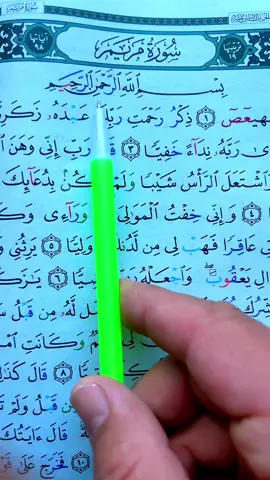 سُورَةُ مَرْيَمَ
بِسْمِ ٱللَّهِ ٱلرَّحْمَٰنِ ٱلرَّحِيمِ
هيعٓصٓ ١ ذِكْرُ رَحْمَتِ رَبِّكَ عَبْدَهُۥ زَكَرِ
رَبَّهُۥ نِدَآءً خَفِيًّا ٣ قَالَ رَبِّ إِنِّى وَهَنَ
ٱشْتَعَلَ ٱلرَّأْسُ شَيْبًا وَلَمْ أَكُنۢ بِدُعَآئِكَ
٤ وَإِنِّى خِفْتُ ٱلْمَوَٰلِىَ وَرَآءِى وَكَ
تِى عَاقِرًا فَهَبْ لِى مِن لَّدُنكَ وَلِيًّا ٥ يَرِثُنِى
ءَالِ يَعْقُوبَ وَٱجْعَلْهُ رَضِيًّا ٦ يَٰزَكَ
شِّرُكَ لَّهُۥ مِن قَبْلُ سَ
وَكَانَتِ ٱمْ
٨ قَالَ كَذَٰلِ
مِن قَبْلُ وَلَمْ تَ
قَالَ ءَايَتُكَ
١٠ فَخَرَجَ عَلَىٰ قَوْ